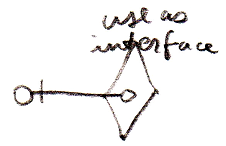 use as
interface